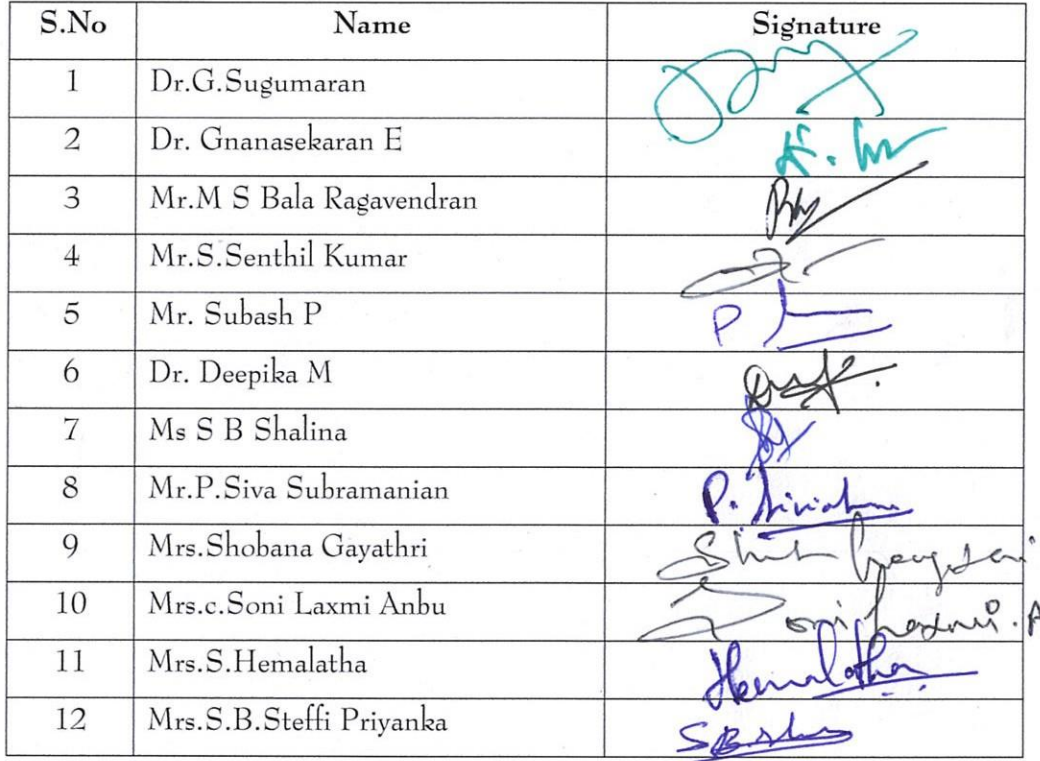 S.No Name Signature
1 Dr.G.Sugumaran
2 Dr. Gnanasekaran E
3 Mr.M S Bala Ragavendran
4 Mr.S.Senthil Kumar
5 Mr. Subash P P
6 Dr. Deepika M
7 Ms S B Shalina
8 Mr.P.Siva Subramanian P.
9 Mrs.Shobana Gayathri
10 Mrs.c.Soni Laxmi Anbu Soni Laxmi. A
11 Mrs.S.Hemalatha Hemalatha
12 Mrs.S.B.Steffi Priyanka